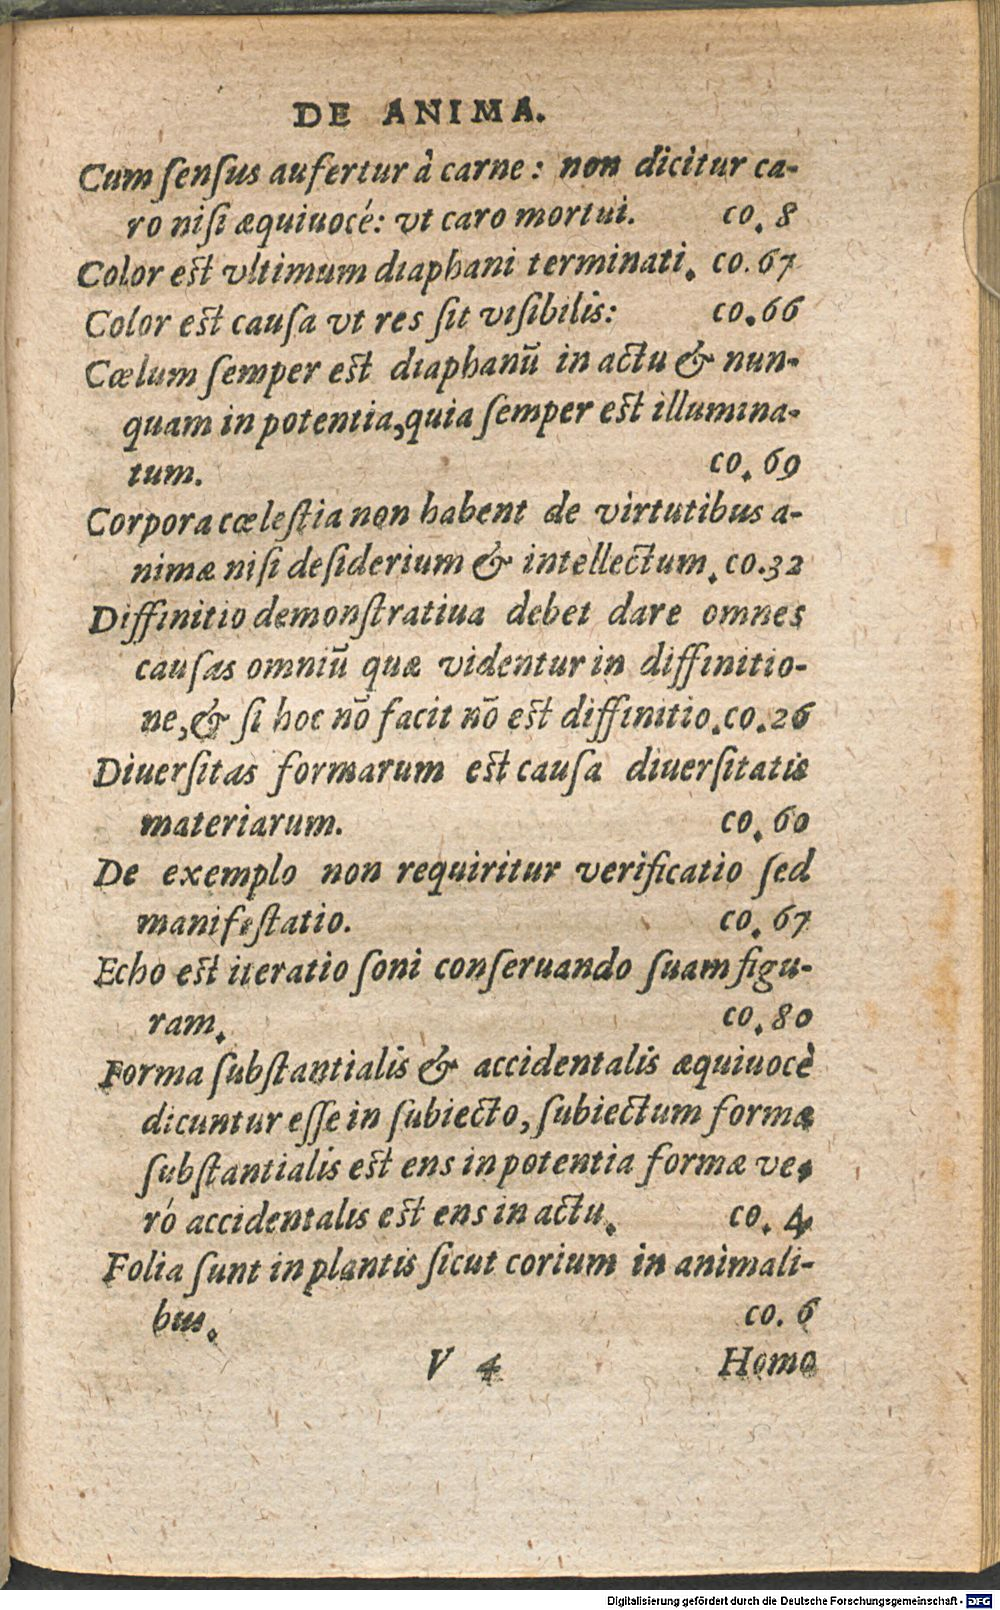 DE ANIMA.
Cum ſenſus aufertur à carne: non dicitur ca-
ro niſi æquiuocé: vt caro mortui. co. 8
Color est vltimum diaphani terminati. co. 67
Color est cauſa vt res ſit viſibilis: co. 66
Cœlum ſemper est diaphanū in actu & nun-
quam in potentia, quia ſemper est illumina-
tum. co. 69
Corpora cœleſtia non habent de virtutibus a-
nimæ niſi deſiderium & intellectum. co. 32
Diffinitio demonſtratiua debet dare omnes
cauſas omniū quæ videntur in diffinitio-
ne, & ſi hoc nō facit nō est diffinitio. co. 26
Diuerſitas formarum est cauſa diuerſitatis
materiarum. co. 60
De exemplo non requiritur verificatio ſed
manifeſtatio. co. 67
Echo est iteratio ſoni conſeruando ſuam figu-
ram. co. 80
Forma ſubſtantialis & accidentalis æquiuocè
dicuntur eſſe in ſubiecto, ſubiectum formæ
ſubſtantialis est ens in potentia formæ ve-
ró accidentalis est ens in actu. co. 4
Folia ſunt in plantis ſicut corium in animali-
bus. co. 6
V 4 Homo
Digitalisierung gefördert durch die Deutsche Forschungsgemeinschaft - DFG